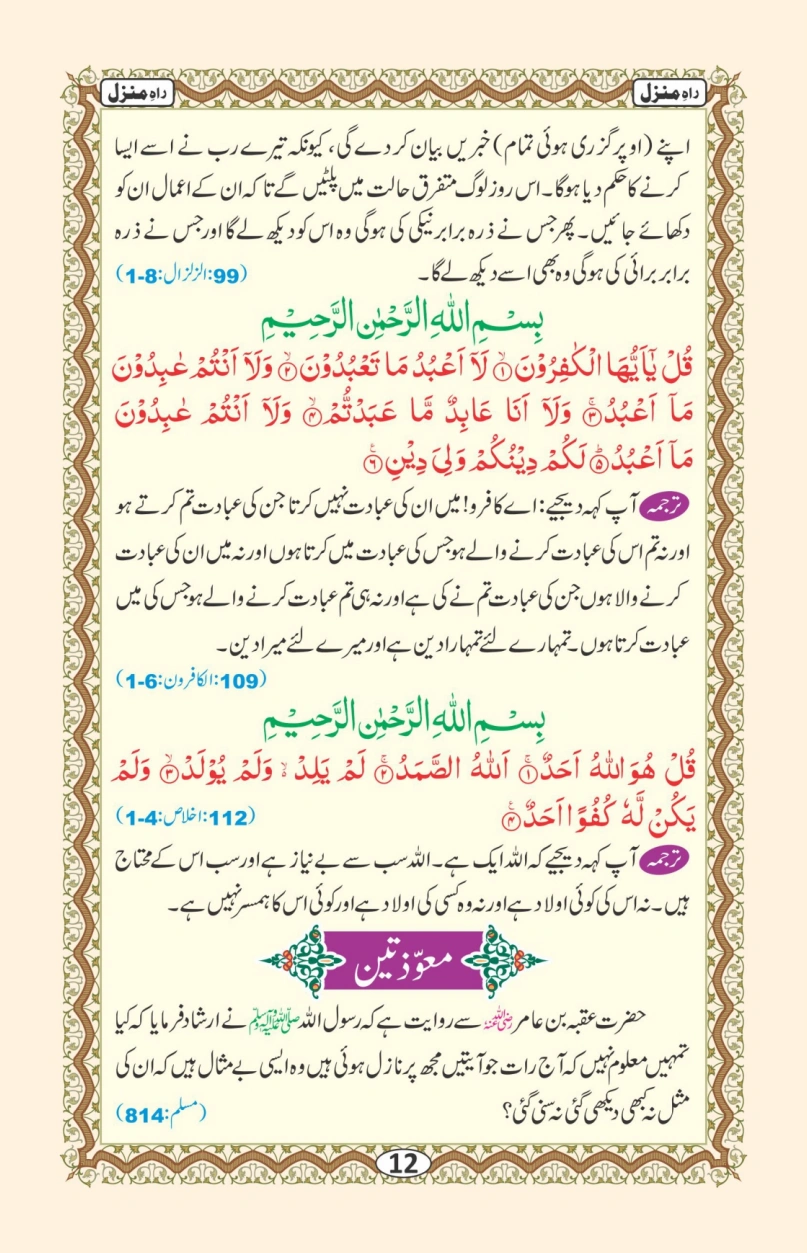 راہِ منزل
راہِ منزل
اپنے (اوپر گزری ہوئی تمام) خبریں بیان کر دے گی، کیونکہ تیرے رب نے اسے ایسا
کرنے کا حکم دیا ہوگا۔ اس روز لوگ متفرق حالت میں پلٹیں گے تاکہ ان کے اعمال ان کو
دکھائے جائیں۔ پھر جس نے ذرہ برابر نیکی کی ہوگی وہ اس کو دیکھ لے گا اور جس نے ذرہ
برابر برائی کی ہوگی وہ بھی اسے دیکھ لے گا۔ (99:الزلزال:8-1)
بِسْمِ اللهِ الرَّحْمٰنِ الرَّحِيْمِ
قُلْ يٰٓاَيُّهَا الْكٰفِرُوْنَ ۙ۝۱ لَآ اَعْبُدُ مَا تَعْبُدُوْنَ ۙ۝۲ وَلَآ اَنْتُمْ عٰبِدُوْنَ
مَآ اَعْبُدُ ۚ۝۳ وَلَآ اَنَا عَابِدٌ مَّا عَبَدْتُّمْ ۙ۝۴ وَلَآ اَنْتُمْ عٰبِدُوْنَ
مَآ اَعْبُدُ ؕ۝۵ لَكُمْ دِيْنُكُمْ وَلِيَ دِيْنِ ۝۶ۧ
ترجمہ آپ کہہ دیجیے: اے کافرو! میں ان کی عبادت نہیں کرتا جن کی عبادت تم کرتے ہو
اور نہ تم اس کی عبادت کرنے والے ہو جس کی عبادت میں کرتا ہوں اور نہ میں ان کی عبادت
کرنے والا ہوں جن کی عبادت تم نے کی ہے اور نہ ہی تم عبادت کرنے والے ہو جس کی میں
عبادت کرتا ہوں۔ تمہارے لئے تمہارا دین ہے اور میرے لئے میرا دین۔
(109:الکافرون:6-1)
بِسْمِ اللهِ الرَّحْمٰنِ الرَّحِيْمِ
قُلْ هُوَ اللهُ اَحَدٌ ۚ۝۱ اَللهُ الصَّمَدُ ۚ۝۲ لَمْ يَلِدْ ۙ وَلَمْ يُوْلَدْ ۙ۝۳ وَلَمْ
يَكُنْ لَّهٗ كُفُوًا اَحَدٌ ۝۴ۧ (112:اخلاص:4-1)
ترجمہ آپ کہہ دیجیے کہ اللہ ایک ہے۔ اللہ سب سے بے نیاز ہے اور سب اس کے محتاج
ہیں۔ نہ اس کی کوئی اولاد ہے اور نہ وہ کسی کی اولاد ہے اور کوئی اس کا ہمسر نہیں ہے۔
معوّذتین
حضرت عقبہ بن عامر رضی اللہ عنہ سے روایت ہے کہ رسول اللہ ﷺ نے ارشاد فرمایا کہ کیا
تمہیں معلوم نہیں کہ آج رات جو آیتیں مجھ پر نازل ہوئی ہیں وہ ایسی بے مثال ہیں کہ ان کی
مثل نہ کبھی دیکھی گئی نہ سنی گئی؟ (مسلم:814)
12